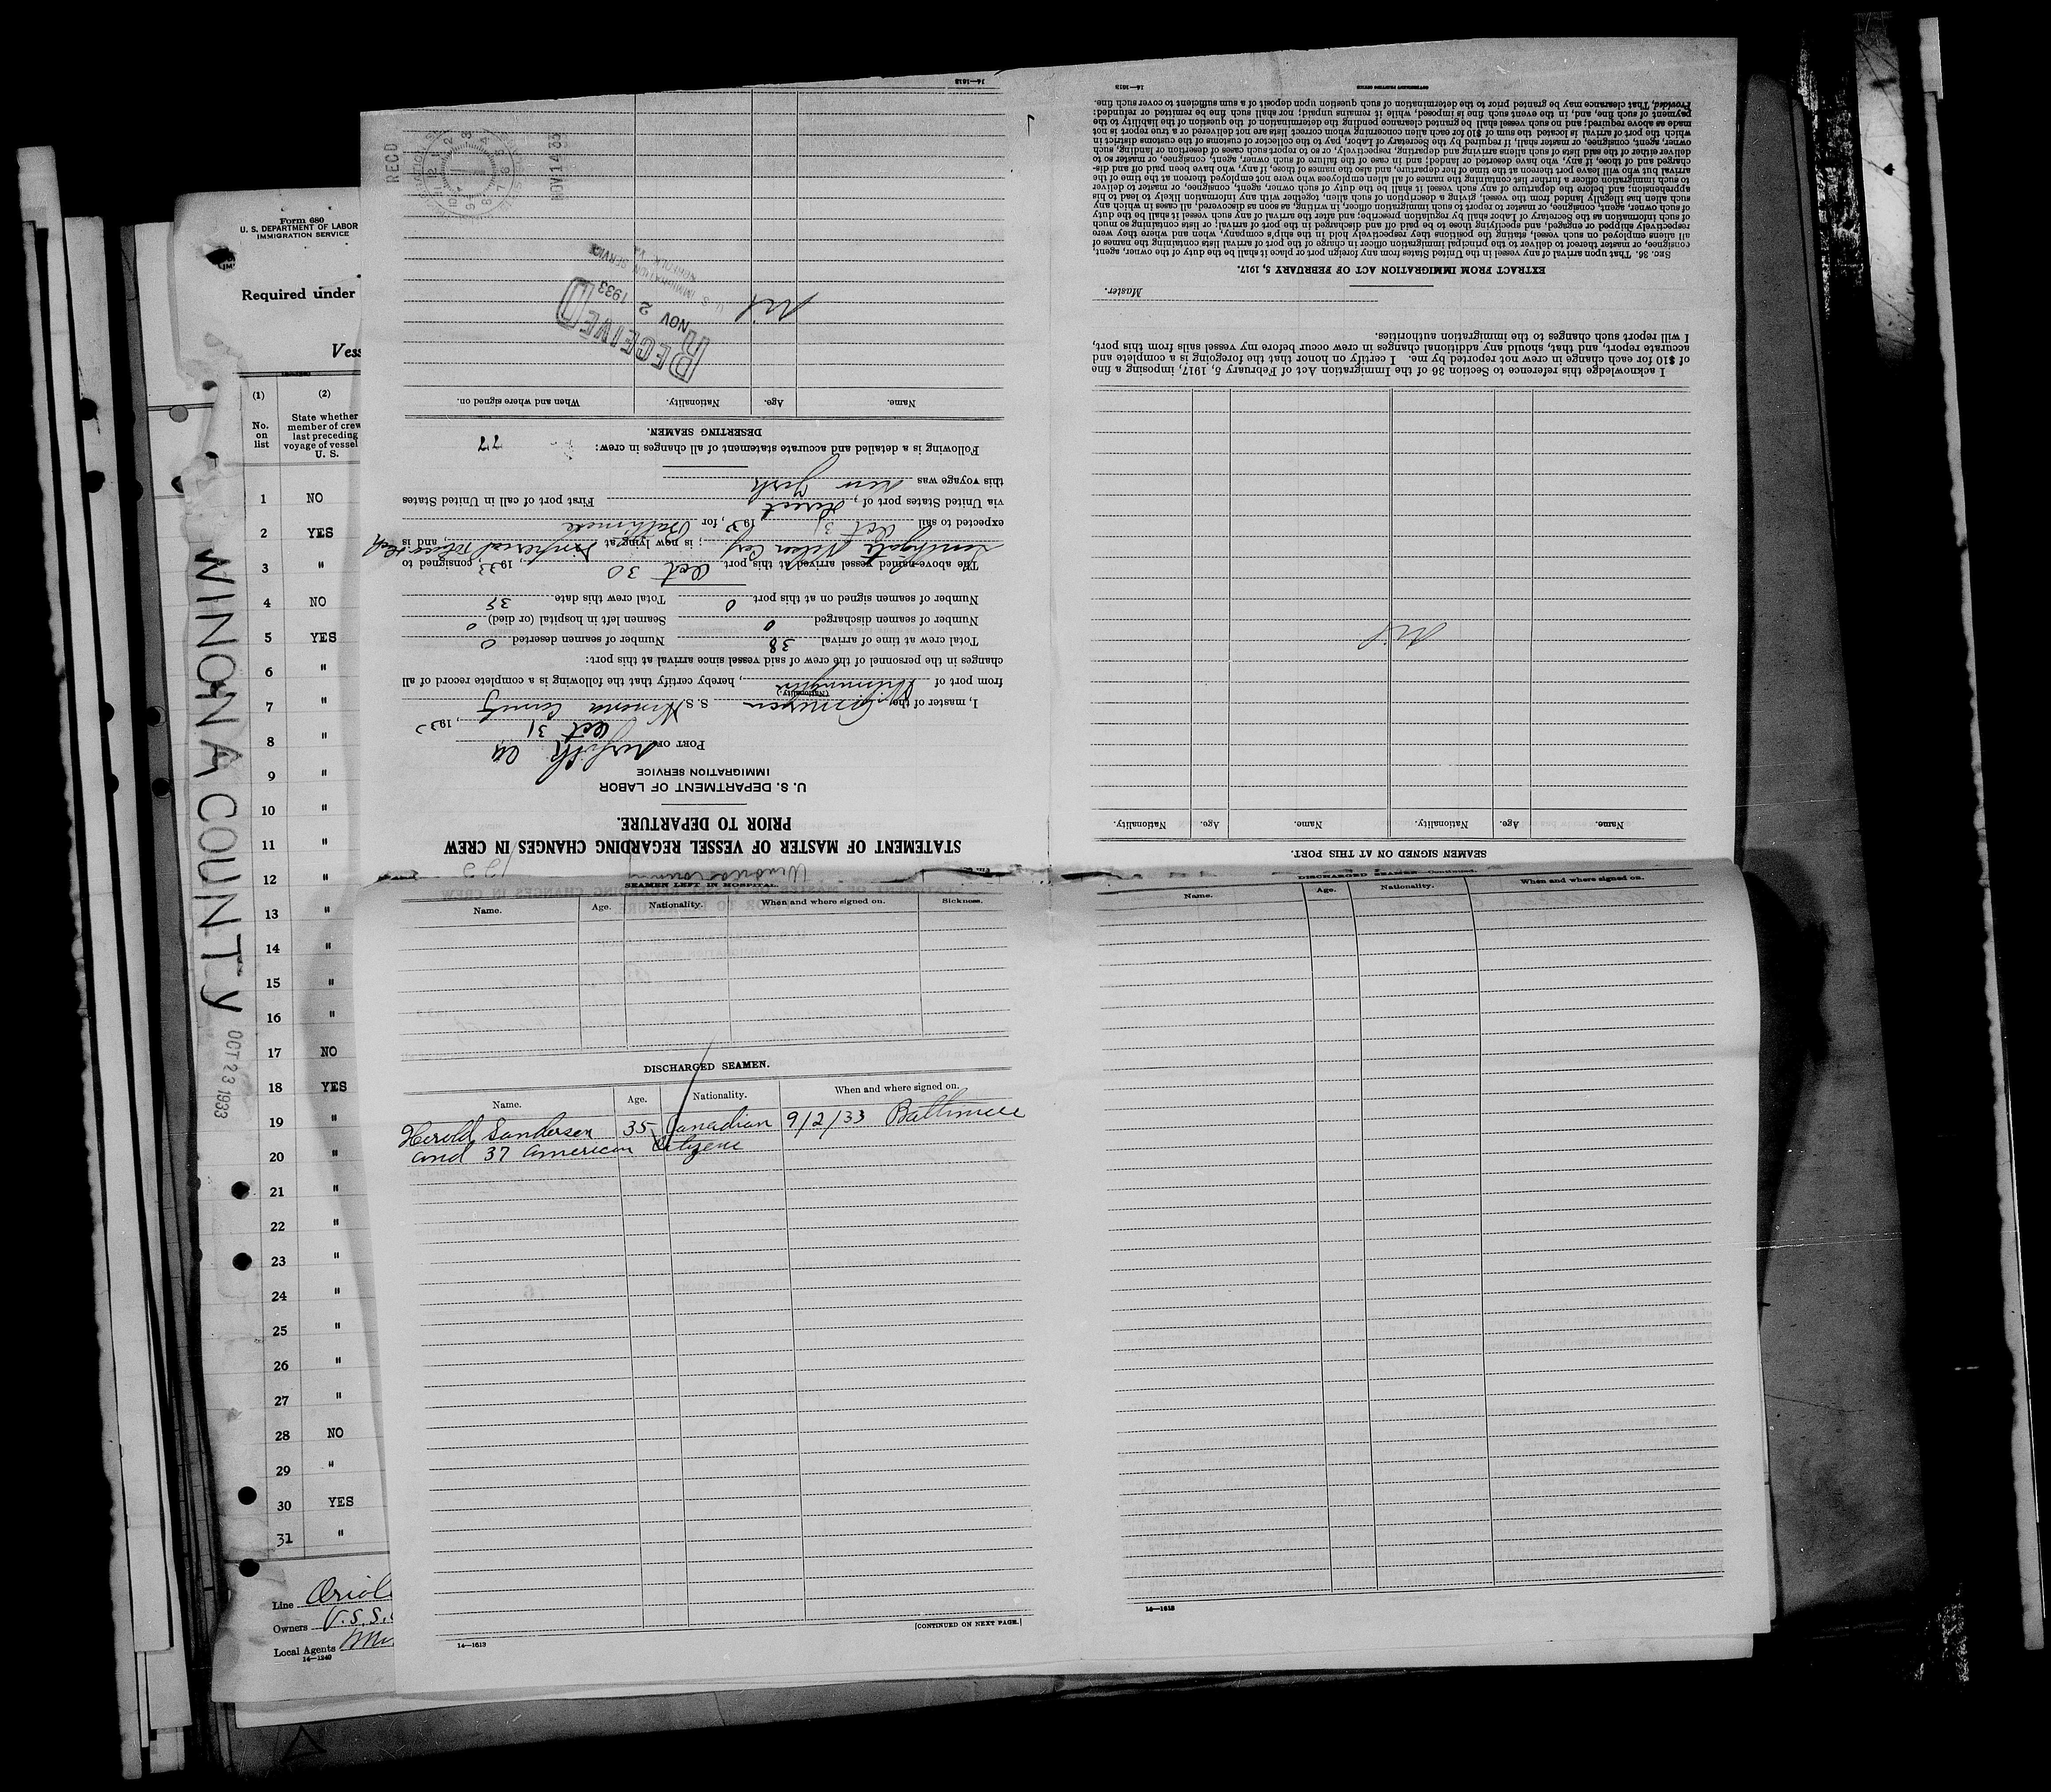 Form 680
U. S. DEPARTMENT OF LABOR
IMMIGRATION SERVICE
Required under
(1)
(2)
No. on list
State whether member of crew last preceding voyage of vessel U. S.
1 NO
2 YES
3 "
4 NO
5 YES
6 "
7 "
8 "
9 "
10 "
11 "
12 "
13 "
14 "
15 "
16 "
17 NO
18 YES
19 "
20 "
21 "
22 "
23 "
24 "
25 "
26 "
27 "
28 NO
29 "
30 YES
31 "
Line
Owners
Local Agents
14—1240
WINONA COUNTY OCT 23 1933
STATEMENT OF MASTER OF VESSEL REGARDING CHANGES IN CREW
PRIOR TO DEPARTURE.
U. S. DEPARTMENT OF LABOR
IMMIGRATION SERVICE
PORT OF Norfolk Va
Oct 31, 1933
I, master of the American S. S. Winona County
(Nationality)
from port of Wilmington, hereby certify that the following is a complete record of all
changes in the personnel of the crew of said vessel since arrival at this port:
Total crew at time of arrival 38 Number of seamen deserted 0
Number of seamen discharged 0 Seamen left in hospital (or died) 0
Number of seamen signed on at this port 0 Total crew this date 38
The above-named vessel arrived at this port Oct 30, 1933, consigned to
Southgate Nelson Corp; is now lying at Imperial Tobacco Dock, and is
expected to sail Oct 31 1933, for Baltimore
via United States port of, direct First port of call in United States
this voyage was New York
Following is a detailed and accurate statement of all changes in crew: 77
DESERTING SEAMEN.
Name. Age. Nationality. When and where signed on.
Nil
RECEIVED
NOV 2 1933
U. S. IMMIGRATION SERVICE
NORFOLK, VA
REC'D
NOV 14 33
14—1613
SEAMEN SIGNED ON AT THIS PORT.
Name. Age. Nationality. Name. Age. Nationality.
Nil
I acknowledge this reference to Section 36 of the Immigration Act of February 5, 1917, imposing a fine
of $10 for each change in crew not reported by me. I certify on honor that the foregoing is a complete and
accurate report, and that, should any additional changes in crew occur before my vessel sails from this port,
I will report such changes to the immigration authorities.
Master.
EXTRACT FROM IMMIGRATION ACT OF FEBRUARY 5, 1917.
SEC. 36. That upon arrival of any vessel in the United States from any foreign port or place it shall be the duty of the owner, agent,
consignee, or master thereof to deliver to the principal immigration officer in charge of the port of arrival lists containing the names of
all aliens employed on such vessel, stating the positions they respectively hold in the ship's company, when and where they were
respectively shipped or engaged, and specifying those to be paid off and discharged in the port of arrival; or lists containing so much
of such information as the Secretary of Labor shall by regulation prescribe; and after the arrival of any such vessel it shall be the duty
of such owner, agent, consignee, or master to report to such immigration officer, in writing, as soon as discovered, all cases in which any
such alien has illegally landed from the vessel, giving a description of such alien, together with any information likely to lead to his
apprehension; and before the departure of any such vessel it shall be the duty of such owner, agent, consignee, or master to deliver
to such immigration officer a further list containing the names of all alien employees who were not employed thereon at the time of the
arrival but who will leave port thereon at the time of her departure, and also the names of those, if any, who have been paid off and dis-
charged and of those, if any, who have deserted or landed; and in case of the failure of such owner, agent, consignee, or master so to
deliver either of the said lists of such aliens arriving and departing, respectively, or so to report such cases of desertion or landing, such
owner, agent, consignee, or master shall, if required by the Secretary of Labor, pay to the collector of customs of the customs district in
which the port of arrival is located the sum of $10 for each alien concerning whom correct lists are not delivered or a true report is not
made as above required; and no such vessel shall be granted clearance pending the determination of the question of the liability to the
payment of such fine, and, in the event such fine is imposed, while it remains unpaid; nor shall such fine be remitted or refunded:
Provided, That clearance may be granted prior to the determination of such question upon deposit of a sum sufficient to cover such fine.
GOVERNMENT PRINTING OFFICE
14—1613
SEAMEN LEFT IN HOSPITAL.
Name. Age. Nationality. When and where signed on. Sickness.
DISCHARGED SEAMEN.
Name. Age. Nationality. When and where signed on.
Herold Sanderson 35 Canadian 9/2/33 Baltimore
and 37 American Citizens
[CONTINUED ON NEXT PAGE.]
14—1613
DISCHARGED SEAMEN—Continued.
Name. Age. Nationality. When and where signed on.
14—1613